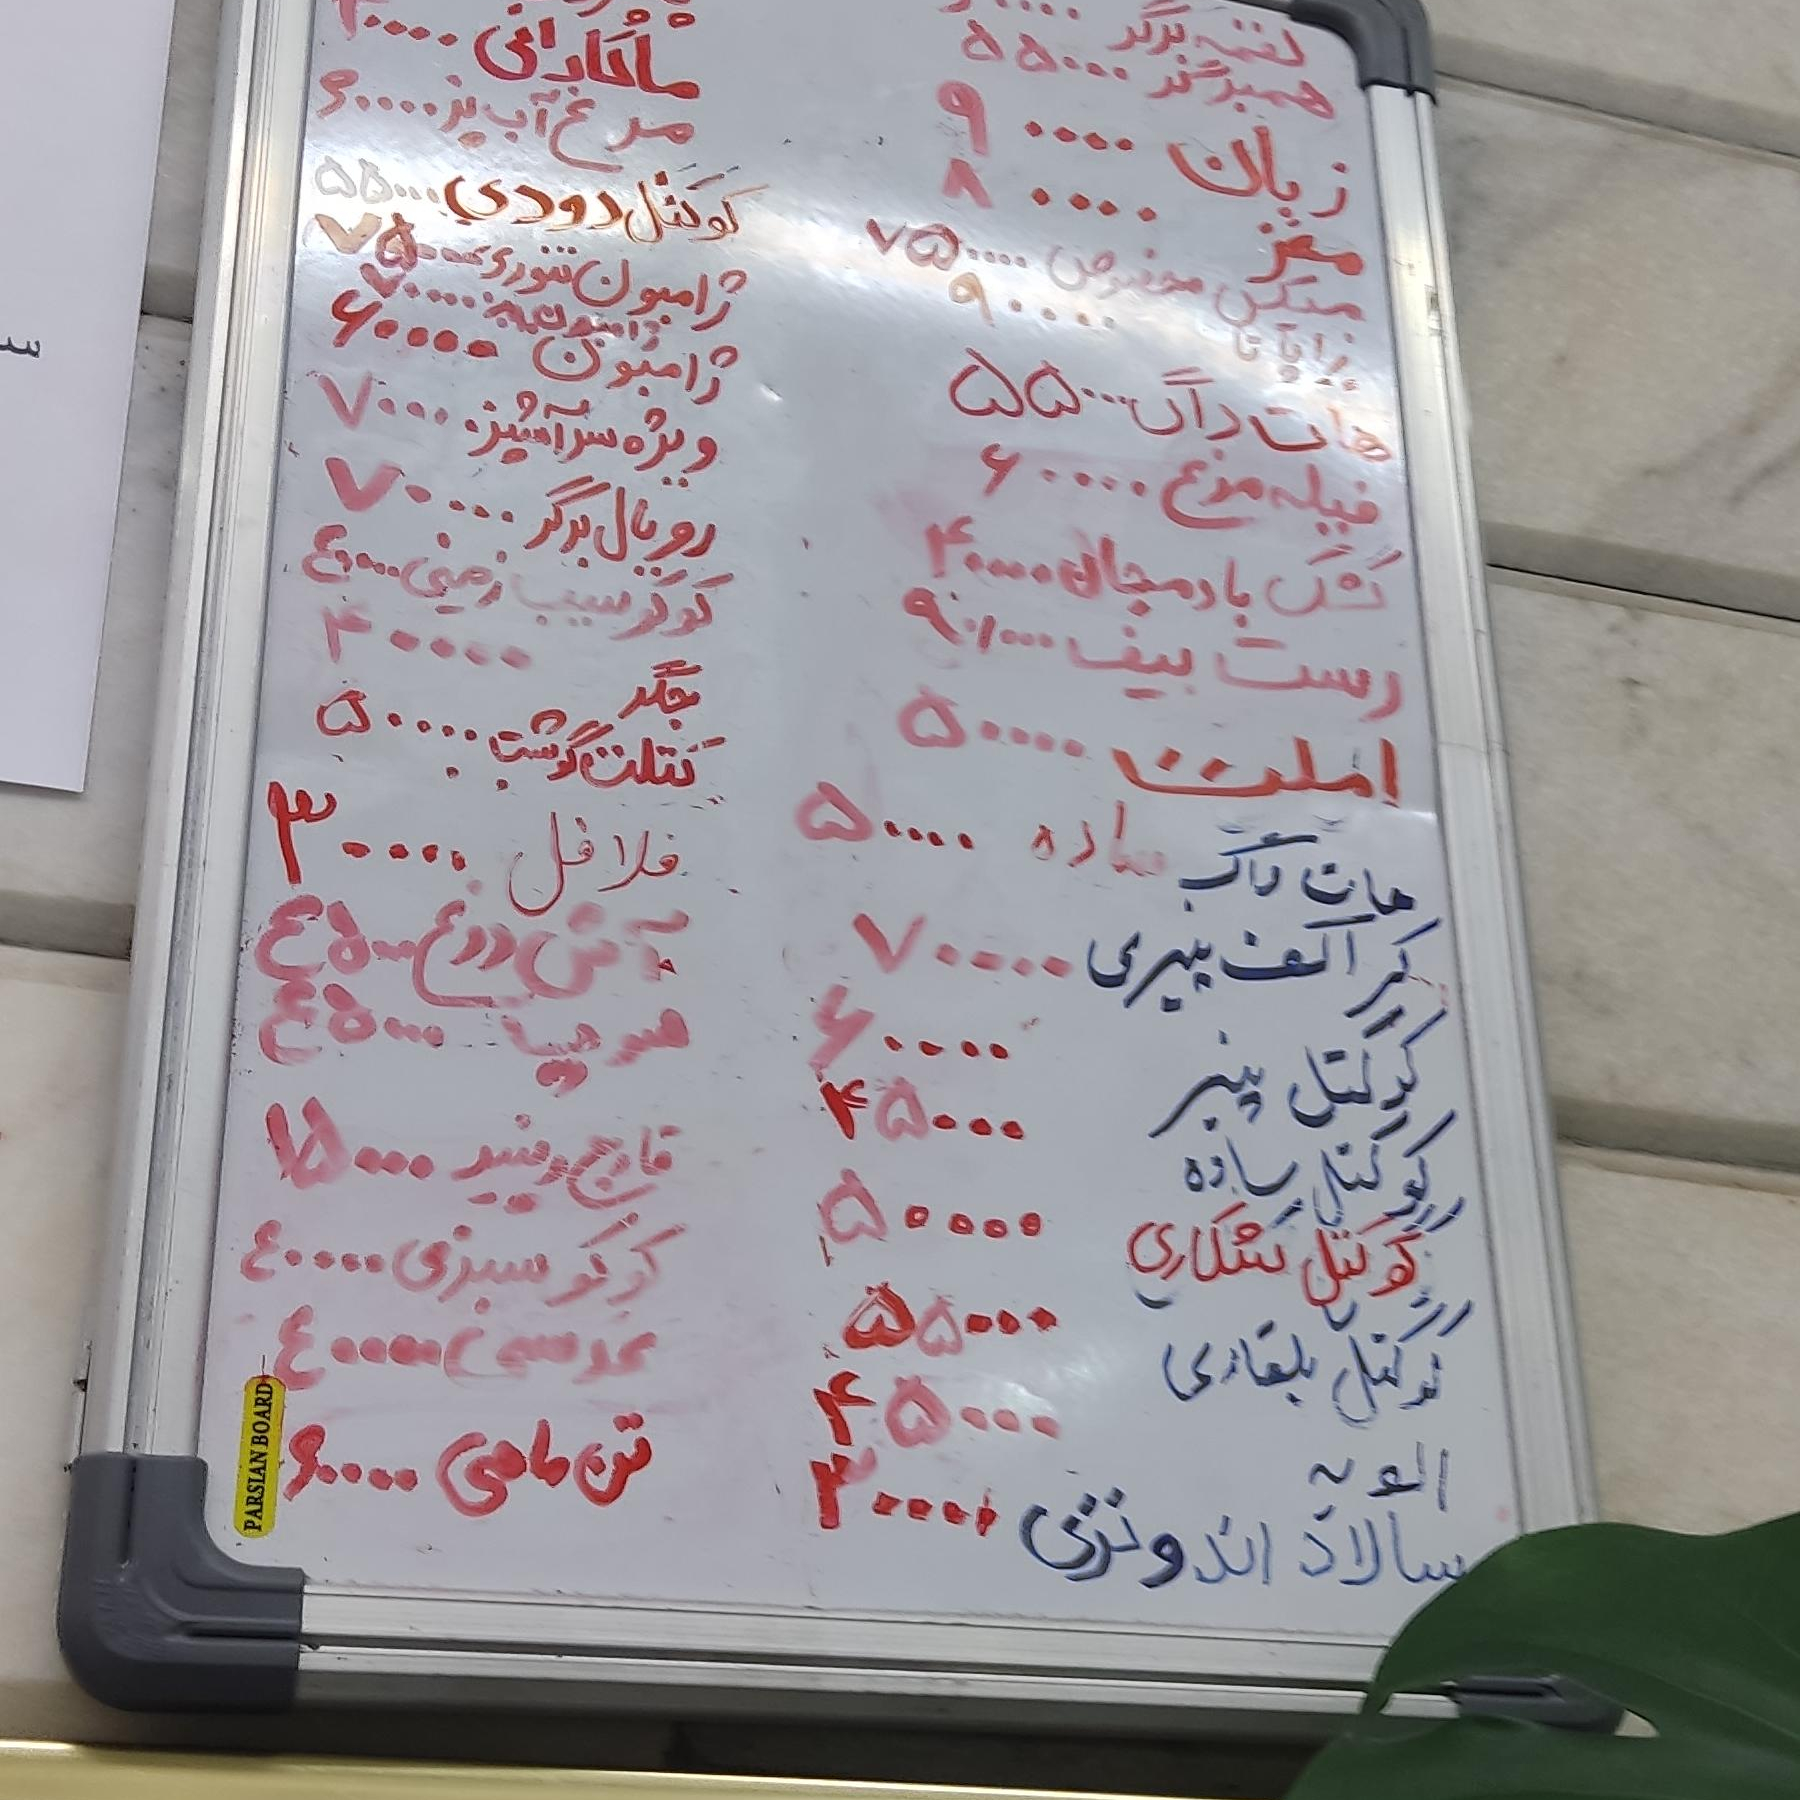 لقمه برگر
همبرگر ۵۵۰۰۰
زبان ۹۰۰۰۰
مغز ۸۰۰۰۰
میکس مخصوص ۷۵۰۰۰
زاپاتا ۹۰۰۰۰
هات داگ ۵۵۰۰۰
فیله مرغ ۶۰۰۰۰
کشک بادمجان ۴۰۰۰۰
رست بیف ۹۰/۰۰۰
املت ۵۰۰۰۰
هات داگ ساده ۵۰۰۰۰
کراکف پنیری ۷۰۰۰۰
کوکتل پنیر ۶۰۰۰۰
کوکتل ساده ۴۵۰۰۰
کوکتل شکاری ۵۰۰۰۰
کوکتل بلغاری ۵۵۰۰۰
الویه ۴۵۰۰۰
سالاد اندونزی ۳۰۰۰۰
ماکارانی ۴۰۰۰۰
مرغ آب پز ۶۰۰۰۰
کوکتل دودی ۵۵۰۰۰
ژامبون تنوری ۷۵۰۰۰
ژامبون ۷۰۰۰۰
ژامبون ۶۰۰۰۰
ویژه سرآشپز ۷۰۰۰۰
رویال برگر ۷۰۰۰۰
کوکو سیب زمینی ۴۰۰۰۰
جگر ۴۰۰۰۰
کتلت گوشت ۵۰۰۰۰
فلافل ۳۰۰۰۰
آش دوغ ۴۵۰۰۰
سوپ ۴۵۰۰۰
قارچ و پنیر ۷۵۰۰۰
کوکو سبزی ۴۰۰۰۰
عدسی ۴۰۰۰۰
تن ماهی ۶۰۰۰۰
PARSIAN BOARD